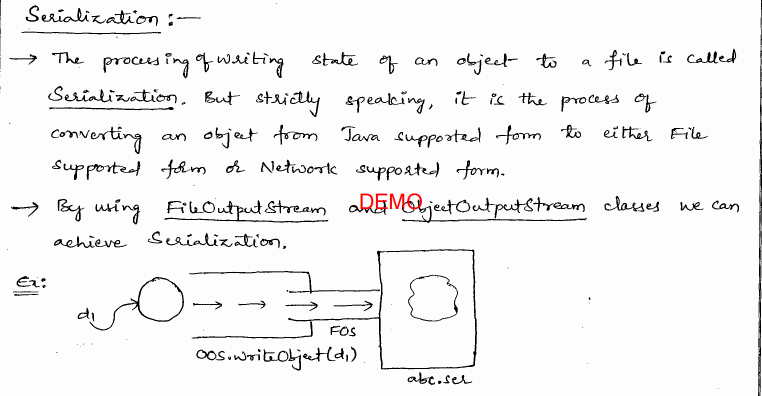 Serialization :—
→ The processing of writing state of an object to a file is called
Serialization. But strictly speaking, it is the process of
converting an object from Java supported form to either File
supported form or Network supported form.
→ By using FileOutputStream and ObjectOutputStream classes we can
DEMO
achieve Serialization.
Ex:
d1
FOS
oos.writeObject(d1)
abc.ser